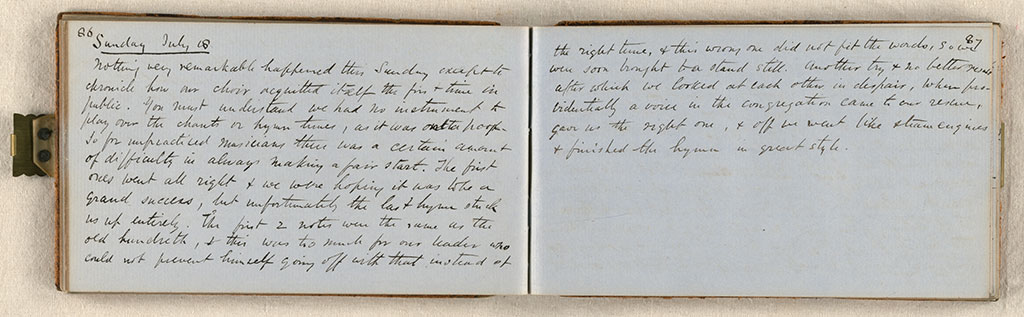 86
Sunday July 18
Nothing very remarkable happened this Sunday except to
chronicle how our choir acquitted itself the first time in
public. You must understand we had no instrument to
play over the chants or hymn tunes, as it was on the poop.
So for unpractised musicians there was a certain amount
of difficulty in always making a fair start. The first
ones went all right & we were hoping it was to be a
grand success, but unfortunately the last hymn stuck
us up entirely. The first 2 notes were the same as the
old hundredth, & this was too much for our leader who
could not prevent himself going off with that instead of
87
the right tune, & this wrong one did not fit the words, so we
were soon brought to a stand still. Another try & no better result
after which we looked at each other in despair, when pro-
videntially a voice in the congregation came to our rescue,
gave us the right one, & off we went like steam engines
& finished the hymn in great style.